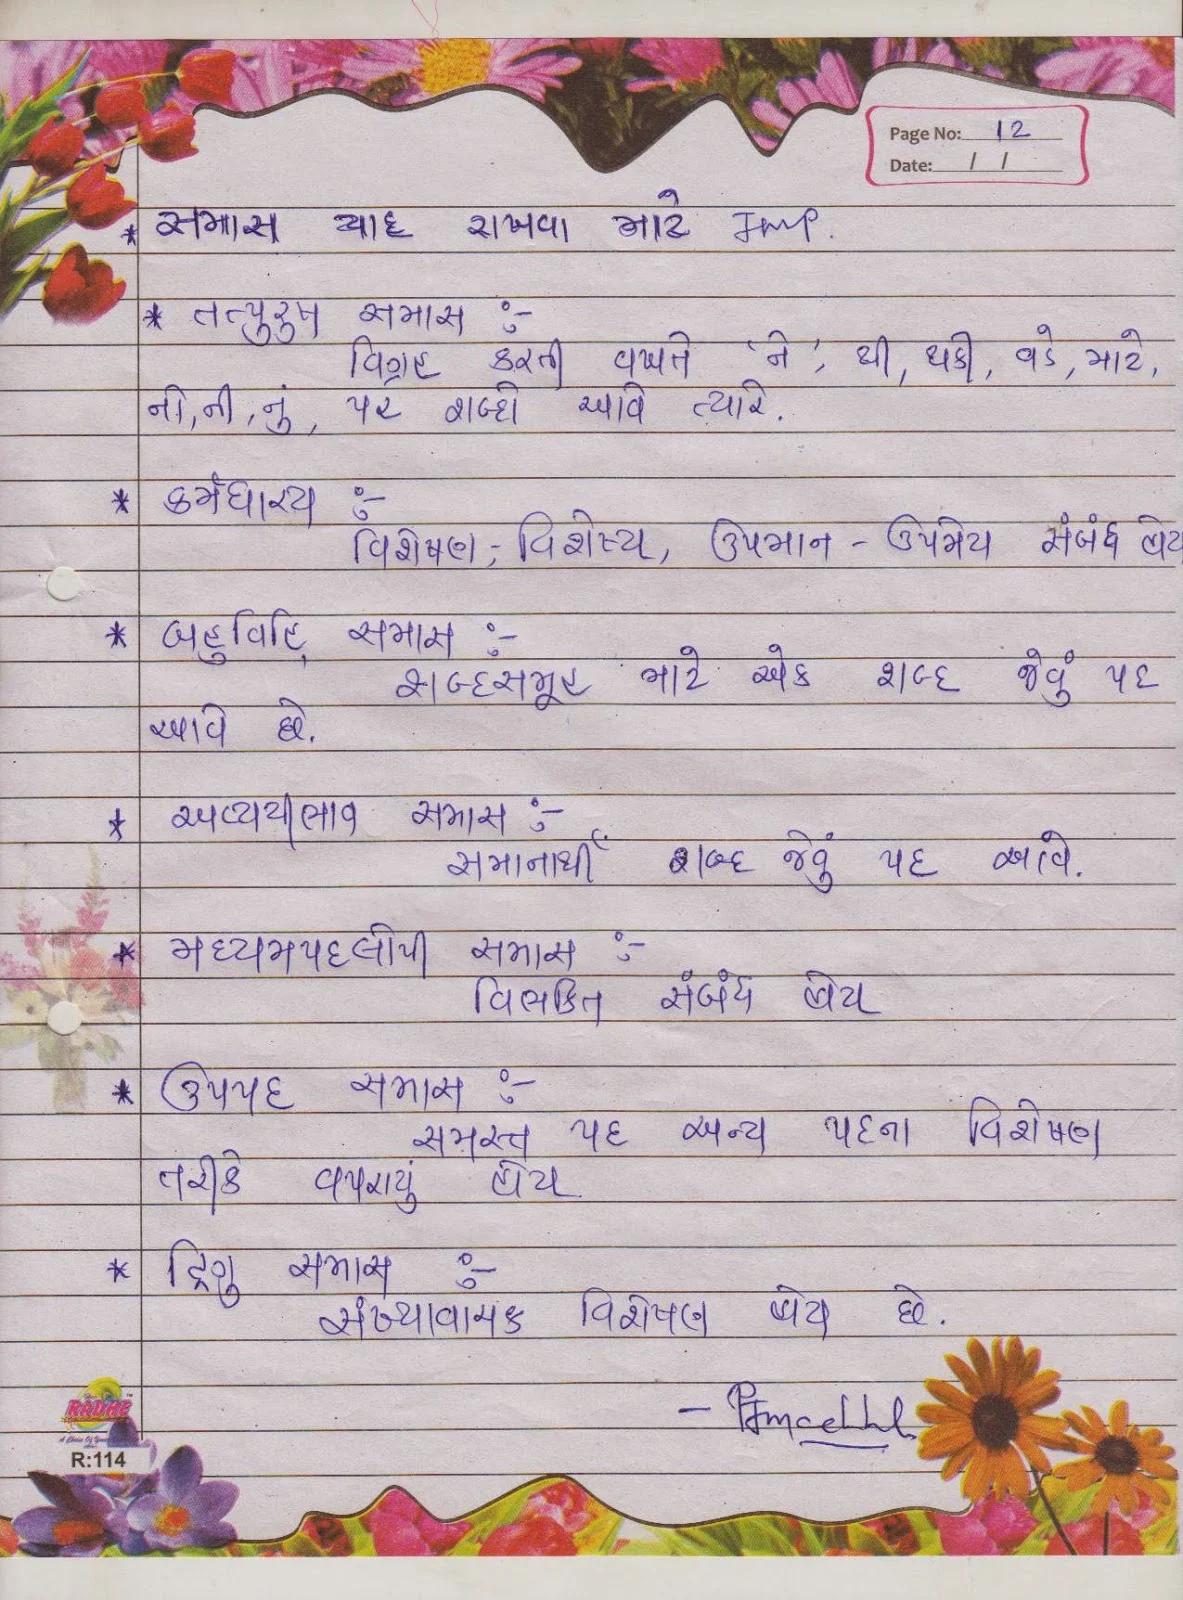 Page No: 12
Date: / /
* સમાસ યાદ રાખવા માટે Imp.
* તત્પુરુષ સમાસ :-
વિગ્રહ કરતી વખતે 'ને', થી, થકી, વડે, માટે,
નો, ની, નું, પર શબ્દો આવે ત્યારે.
* કર્મધારય :-
વિશેષણ - વિશેષ્ય, ઉપમાન - ઉપમેય સંબંધ હોય
* બહુવિહિ સમાસ :-
શબ્દસમૂહ માટે એક શબ્દ જેવું પદ
આવે છે.
* અવ્યયીભાવ સમાસ :-
સમાનાર્થી શબ્દ જેવું પદ આવે.
* મધ્યમપદલોપી સમાસ :-
વિભકિત સંબંધ હોય
* ઉપપદ સમાસ :-
સમસ્ત પદ અન્ય પદના વિશેષણ
તરીકે વપરાયું હોય
* દ્વિગુ સમાસ :-
સંખ્યાવાચક વિશેષણ હોય છે.
RADHE
R:114